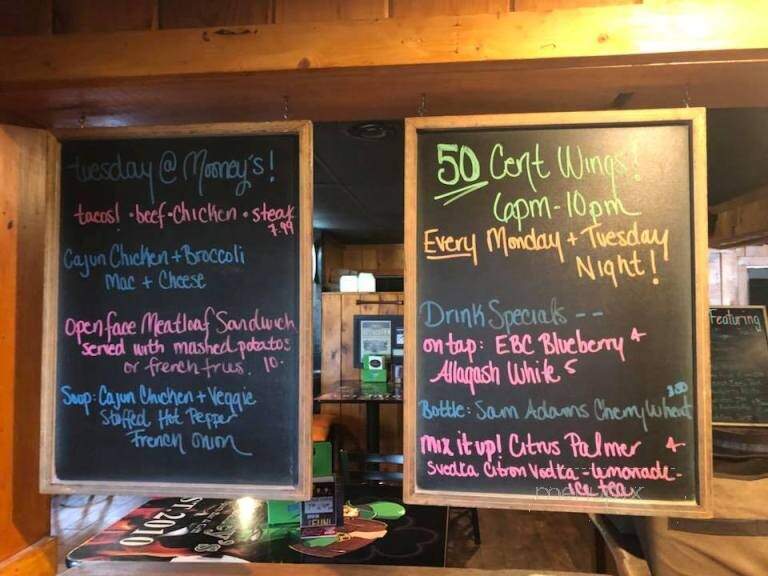 tuesday @ Mooney's!
tacos! • beef • Chicken • steak
7.99
Cajun Chicken + Broccoli
Mac + Cheese
Open face Meatloaf Sandwich
served with mashed potatos
or french fries. 10.
Soup: Cajun Chicken + Veggie
Stuffed Hot Pepper
French Onion
50 Cent Wings!
6pm-10pm
Every Monday + Tuesday
Night!
Drink Specials --
on tap: EBC Blueberry 4
Allagash White 5
3.00
Bottle: Sam Adams Cherry Wheat
mix it up! Citrus Palmer 4
Svedka Citron Vodka - lemonade -
ice tea
Featuring
ST. 2010